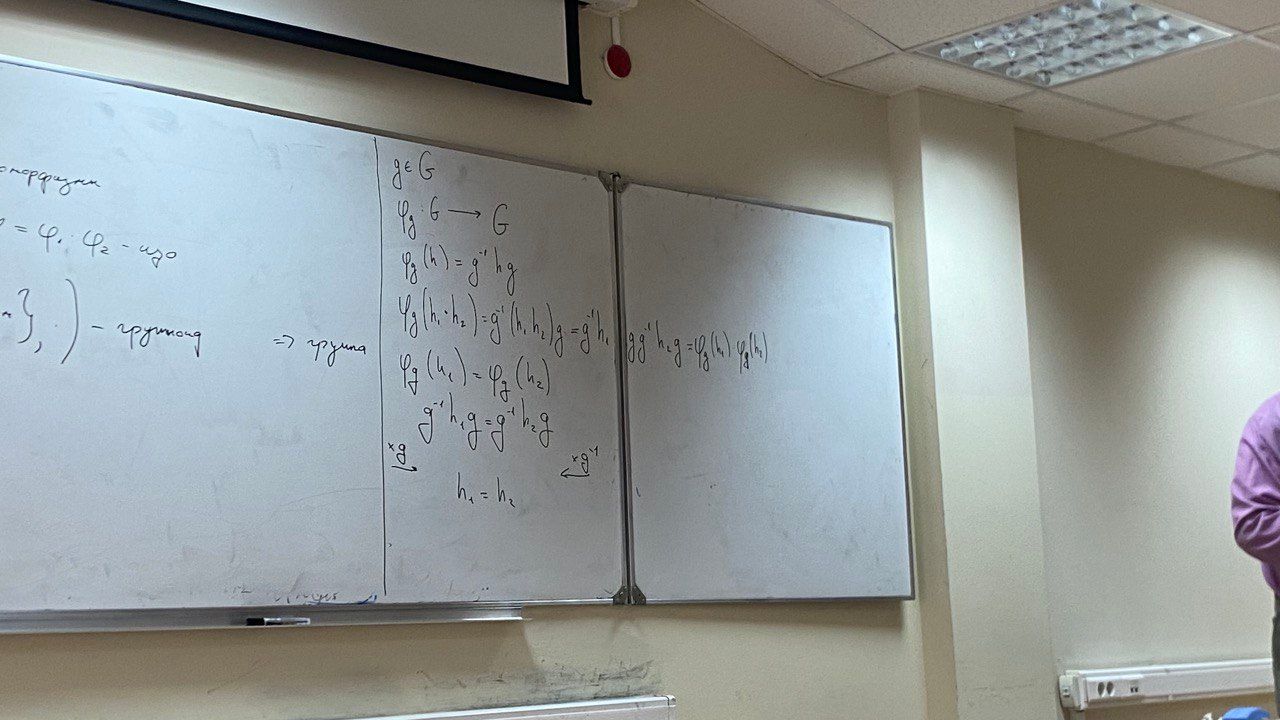 = φ₁ · φ₂ - изо
}, · ) - группоид => группа
g ∈ G
φ_g : G ⟶ G
φ_g(h) = g⁻¹hg
φ_g(h₁·h₂) = g⁻¹(h₁h₂)g = g⁻¹h₁gg⁻¹h₂g = φ_g(h₁)·φ_g(h₂)
φ_g(h₁) = φ_g(h₂)
g⁻¹h₁g = g⁻¹h₂g
×g → ← ×g⁻¹
h₁ = h₂